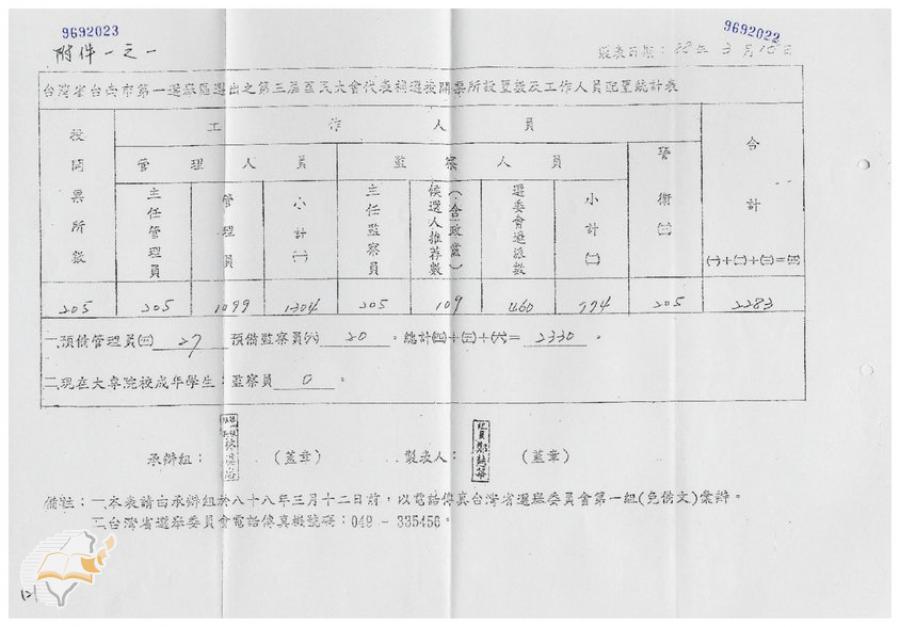 9692023
9692022
附件一之一
製表日期：88年3月15日
台灣省台南市第一選舉區選出之第三屆國民大會代表補選投開票所設置數及工作人員配置統計表
投開票所數
工作人員
合計
管理人員
監察人員
警衛㈢
主任管理員
管理員
小計㈠
主任監察員
候選人推荐數(含政黨)
選委會遴派數
小計㈡
㈠+㈡+㈢=㈣
205 205 1099 1304 205 109 460 774 205 2283
一、預備管理員㈤ 27 預備監察員㈥ 20 。總計㈣+㈤+㈥= 2330 。
二、現在大專院校成年學生：監察員 0 。
承辦組：（蓋章） 製表人：（蓋章）
備註：一、本表請由承辦組於八十八年三月十二日前，以電話傳真台灣省選舉委員會第一組(免備文)彙辦。
二、台灣省選舉委員會電話傳真機號碼：049－335456。